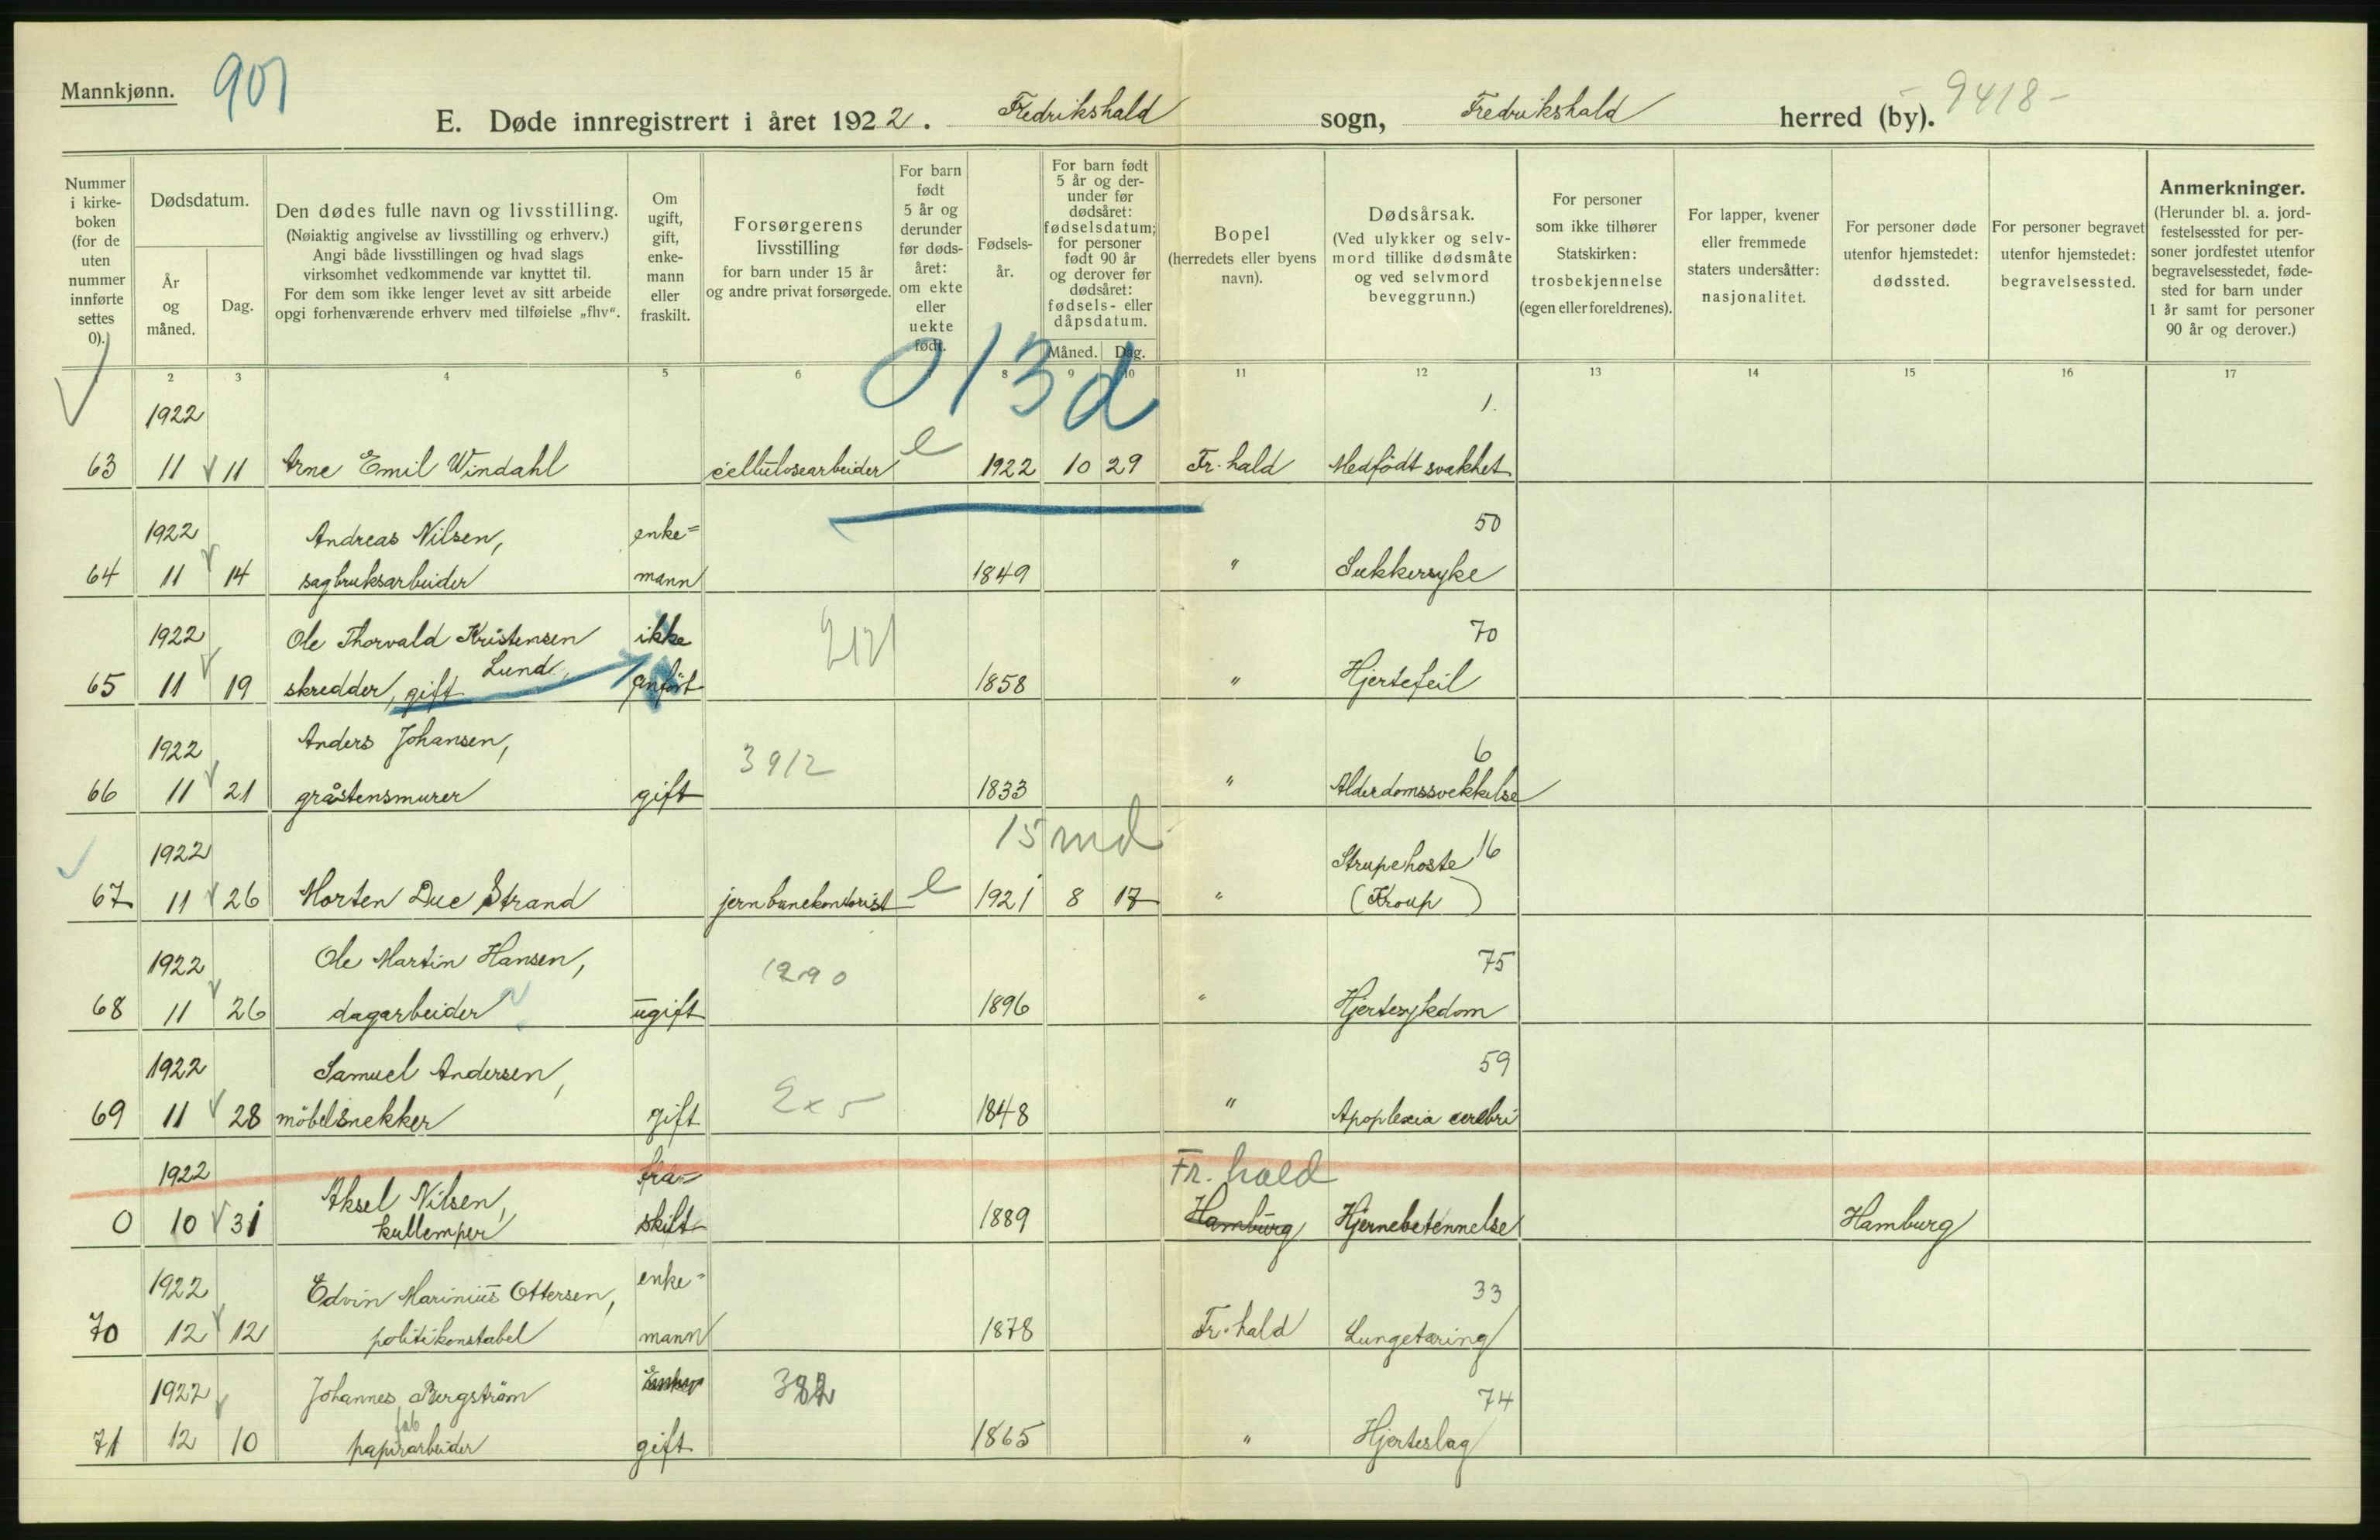 Mannkjønn. 901
E. Døde innregistrert i året 1922. Fredrikshald sogn, Fredrikshald herred (by). 9418-
Nummer i kirke-boken (for de uten nummer innførte settes 0).
Dødsdatum.
År og måned.
Dag.
Den dødes fulle navn og livsstilling.
(Nøiaktig angivelse av livsstilling og erhverv.)
Angi både livsstillingen og hvad slags
virksomhet vedkommende var knyttet til.
For dem som ikke lenger levet av sitt arbeide
opgi forhenværende erhverv med tilføielse „fhv“.
Om ugift, gift, enke-mann eller fraskilt.
Forsørgerens
livsstilling
for barn under 15 år
og andre privat forsørgede.
For barn født 5 år og derunder før døds-året: om ekte eller uekte født.
Fødsels-år.
For barn født 5 år og der-under før dødsåret: fødselsdatum; for personer født 90 år og derover før dødsåret: fødsels- eller dåpsdatum.
Måned. Dag.
Bopel
(herredets eller byens
navn).
Dødsårsak.
(Ved ulykker og selv-
mord tillike dødsmåte
og ved selvmord
beveggrunn.)
For personer
som ikke tilhører
Statskirken:
trosbekjennelse
(egen eller foreldrenes).
For lapper, kvener
eller fremmede
staters undersåtter:
nasjonalitet.
For personer døde
utenfor hjemstedet:
dødssted.
For personer begravet
utenfor hjemstedet:
begravelsessted.
Anmerkninger.
(Herunder bl. a. jord-
festelsessted for per-
soner jordfestet utenfor
begravelsesstedet, føde-
sted for barn under
1 år samt for personer
90 år og derover.)
2 3 4 5 6 8 9 10 11 12 13 14 15 16 17
0 13 d
1922 1.
63 11 11 Arne Emil Windahl cellulosearbeider e 1922 10 29 Fr. hald Medfödt svakhet
1922 Andreas Nilsen, enke= 50
64 11 14 sagbruksarbeider mann 1849 " Sukkersyke
1922 Ole Thorvald Kristensen ikke 70
Lund,
65 11 19 skredder, gift anfört 1858 " Hjertefeil
1922 Anders Johansen, 3912 6
66 11 21 gråstensmurer gift 1833 " Alderdomssvekkelse
15 md
1922 Strupehoste 16
67 11 26 Morten Due Strand jernbanekontorist e 1921 8 17 " (Kroup)
1922 Ole Martin Hansen, 1290 75
68 11 26 dagarbeider ugift 1896 " Hjertesykdom
1922 Samuel Andersen, 59
69 11 28 möbelsnekker gift 1848 " Apoplexia cerebri
1922 Aksel Nilsen, fra= Fr. hald
0 10 31 kullemper skilt 1889 Hamburg Hjernebetennelse Hamburg
1922 Edvin Marinius Ottersen, enke= 33
70 12 12 politikonstabel mann 1878 Fr. hald Lungetæring
1922 Johannes Bergström 382 74
fab
71 12 10 papirarbeider gift 1865 " Hjerteslag